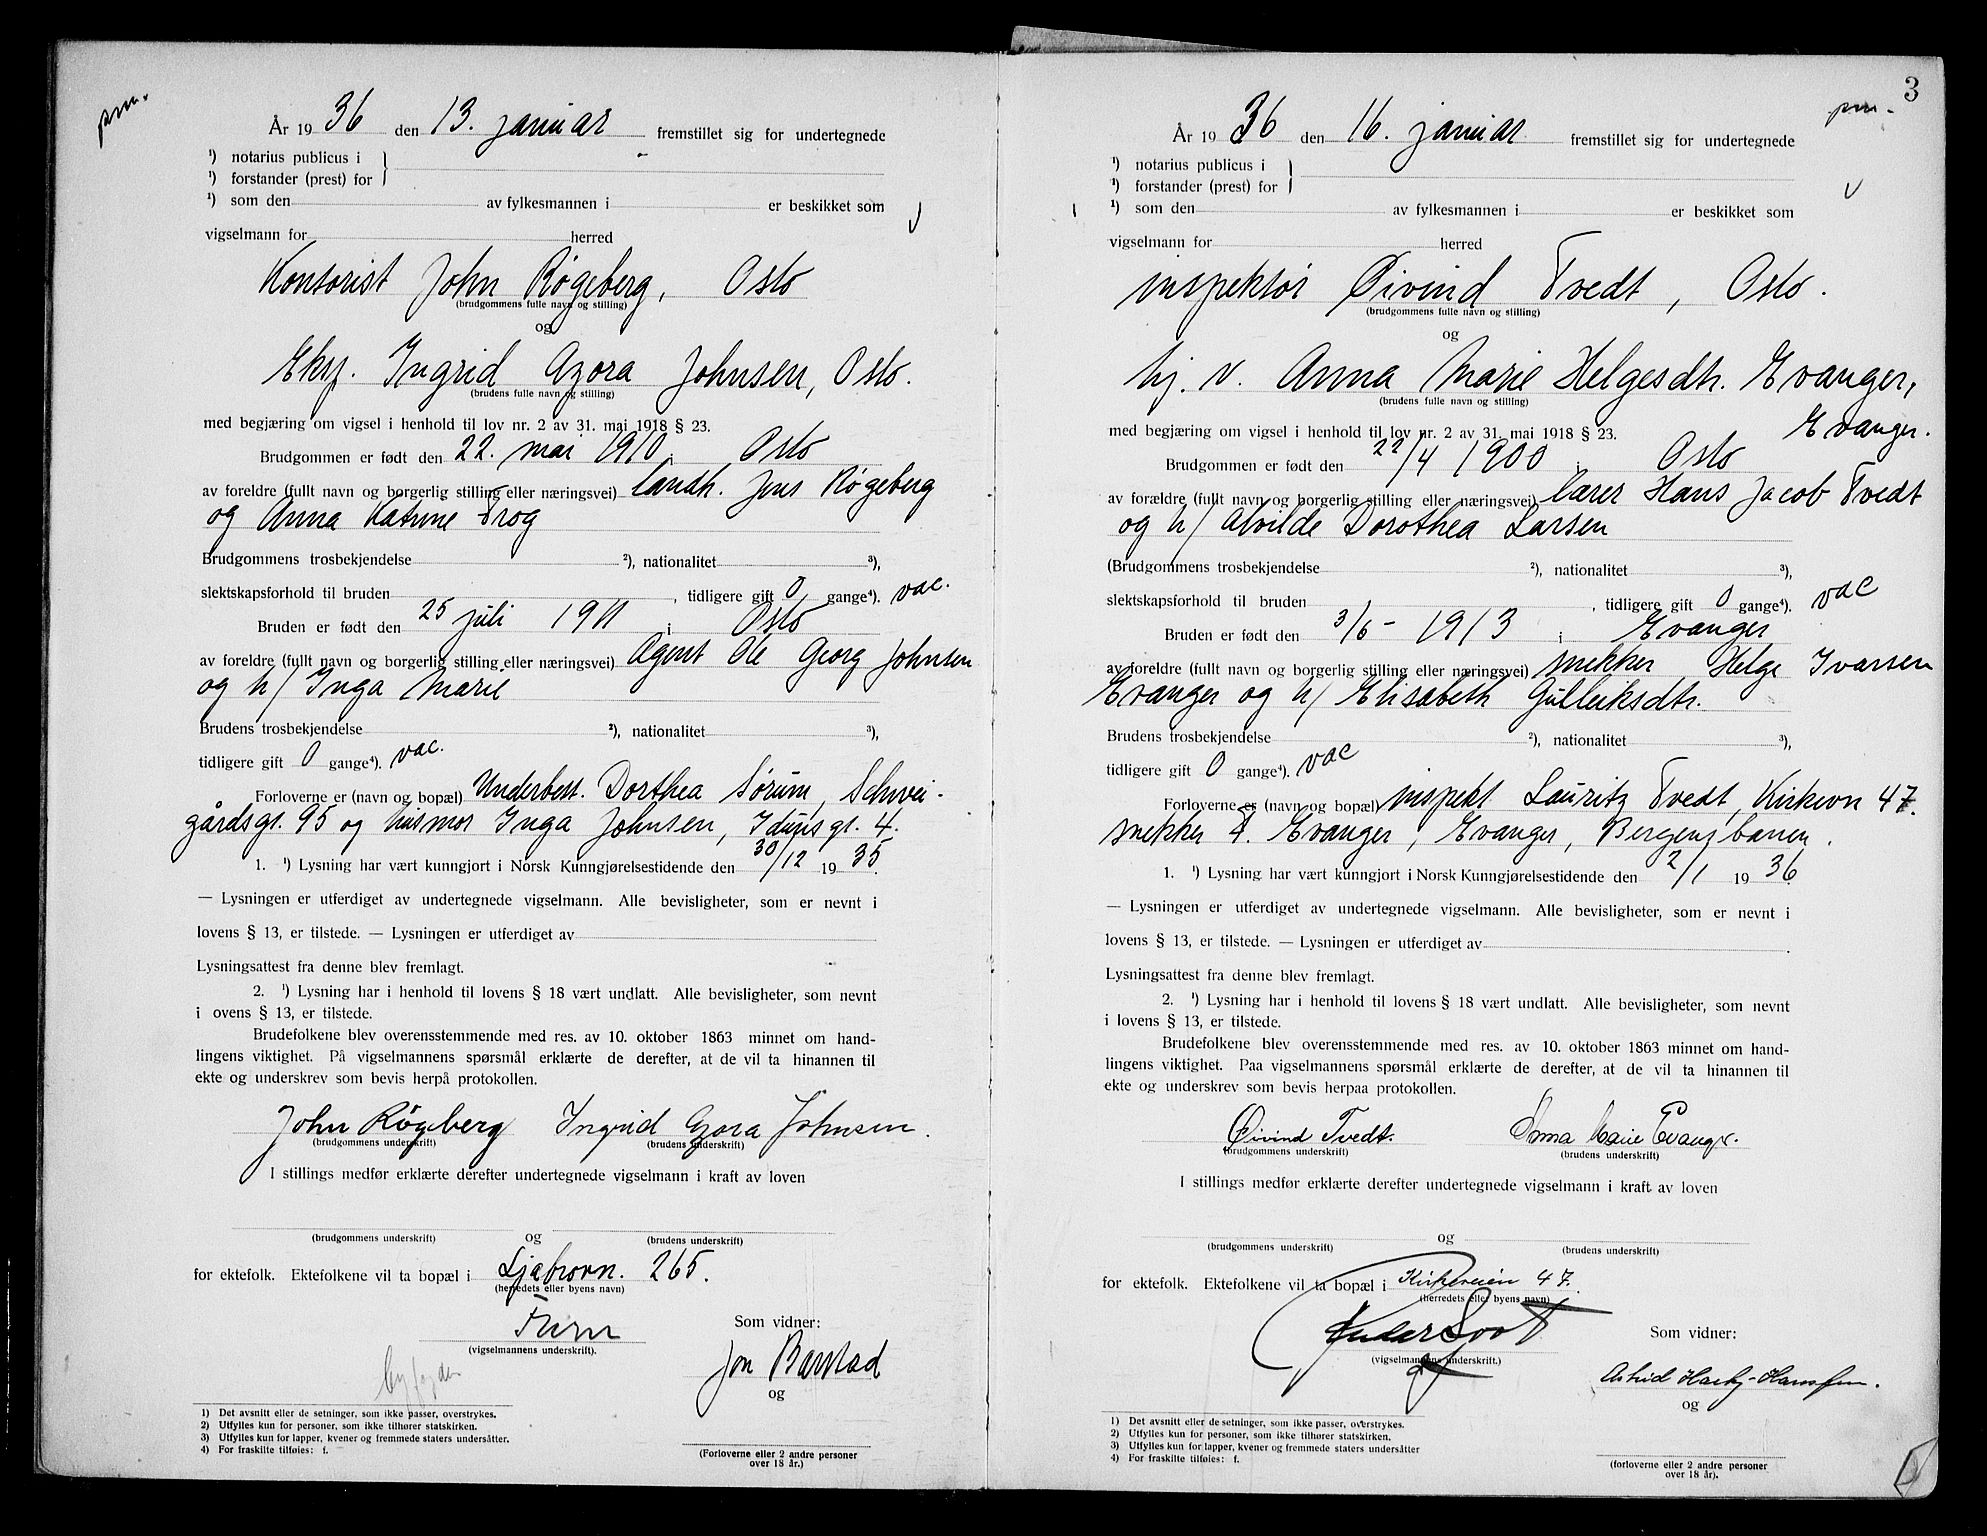 pm.
År 1936 den 13. januar fremstillet sig for undertegnede
¹) notarius publicus i }
¹) forstander (prest) for
¹) som den av fylkesmannen i er beskikket som
vigselmann for herred
Kontorist John Røgeberg, Oslo
(brudgommens fulle navn og stilling)
og
Eksp. Ingrid Azora Johnsen, Oslo.
(brudens fulle navn og stilling)
med begjæring om vigsel i henhold til lov nr. 2 av 31. mai 1918 § 23.
Brudgommen er født den 22. mai 1910 i Oslo
av foreldre (fullt navn og borgerlig stilling eller næringsvei) landh. Jens Røgeberg
og Anna Katrine Frog
Brudgommens trosbekjendelse ²), nationalitet ³),
slektskapsforhold til bruden , tidligere gift 0 gange⁴). vac.
Bruden er født den 25 juli 1911 i Oslo
av foreldre (fullt navn og borgerlig stilling eller næringsvei) Agent Ole Georg Johnsen
og h/ Inga Marie
Brudens trosbekjendelse ²), nationalitet ³),
tidligere gift 0 gange⁴). vac.
Forloverne er (navn og bopæl) Underbest. Dorthea Sørum, Schwei-
gårdsgt. 95 og husmor Inga Johnsen, Idunsgt. 4.
1. ¹) Lysning har vært kunngjort i Norsk Kunngjørelsestidende den 30/12 1935.
— Lysningen er utferdiget av undertegnede vigselmann. Alle bevisligheter, som er nevnt i
lovens § 13, er tilstede. — Lysningen er utferdiget av
Lysningsattest fra denne blev fremlagt.
2. ¹) Lysning har i henhold til lovens § 18 vært undlatt. Alle bevisligheter, som nevnt
i ovens § 13, er tilstede.
Brudefolkene blev overensstemmende med res. av 10. oktober 1863 minnet om hand-
lingens viktighet. På vigselmannens spørsmål erklærte de derefter, at de vil ta hinannen til
ekte og underskrev som bevis herpå protokollen.
John Røgeberg Ingrid Azora Johnsen.
(brudgommens underskrift) (brudens underskrift)
I stillings medfør erklærte derefter undertegnede vigselmann i kraft av loven
og
(brudgommens underskrift) (brudens underskrift)
for ektefolk. Ektefolkene vil ta bopæl i Ljabrovn. 265.
(herredets eller byens navn)
Som vidner:
(vigselmannens underskrift).
Jon Barstad
og
1) Det avsnitt eller de setninger, som ikke passer, overstrykes.
2) Utfylles kun for personer, som ikke tilhører statskirken.
3) Utfylles kun for lapper, kvener og fremmede staters undersåtter.
4) For fraskilte tilføies: f.
(Forloverne eller 2 andre personer
over 18 år.)
3
pm.
År 1936 den 16. januar fremstillet sig for undertegnede
¹) notarius publicus i }
¹) forstander (prest) for
¹) som den av fylkesmannen i er beskikket som
vigselmann for herred
inspektør Øivind Tvedt, Oslo.
(brudgommens fulle navn og stilling)
og
hj. v. Anna Marie Helgesdtr. Evanger,
(brudens fulle navn og stilling)
med begjæring om vigsel i henhold til lov nr. 2 av 31. mai 1918 § 23. Evanger.
Brudgommen er født den 22/4 1900 i Oslo
av forældre (fullt navn og borgerlig stilling eller næringsvei) lærer Hans Jacob Tvedt
og h/ Alvilde Dorothea Larsen
(Brudgommens trosbekjendelse ²), nationalitet ³),
slektskapsforhold til bruden , tidligere gift 0 gange⁴). vac
Bruden er født den 3/6 - 1913 i Evanger
av foreldre (fullt navn og borgerlig stilling eller næringsvei) snekker Helge Ivarsen
Evanger og h/ Elisabeth Gulleiksdtr.
Brudens trosbekjendelse ²), nationalitet ³),
tidligere gift 0 gange⁴). vac
Forloverne er (navn og bopæl) inspekt. Lauritz Tvedt, Kirkevn 47.
snekker Evanger, Evanger, Bergensbanen.
1. ¹) Lysning har vært kunngjort i Norsk Kunngjørelsestidende den 2/1 1936.
— Lysningen er utferdiget av undertegnede vigselmann. Alle bevisligheter, som er nevnt i
lovens § 13, er tilstede. — Lysningen er utferdiget av .
Lysningsattest fra denne blev fremlagt.
2. ¹) Lysning har i henhold til lovens § 18 vært undlatt. Alle bevisligheter, som nevnt
i lovens § 13, er tilstede.
Brudefolkene blev overensstemmende med res. av 10. oktober 1863 minnet om hand-
lingens viktighet. Paa vigselmannens spørsmål erklærte de derefter, at de vil ta hinannen til
ekte og underskrev som bevis herpaa protokollen.
Øivind Tvedt. Anna Marie Evanger.
(brudgommens underskrift) (brudens underskrift)
I stillings medfør erklærte derefter undertegnede vigselmann i kraft av loven
og
(brudgommens underskrift) (brudens underskrift)
for ektefolk. Ektefolkene vil ta bopæl i Kirkeveien 47.
(herredets eller byens navn)
Som vidner:
(vigselmannens underskrift.)
Astrid -Hanssen.
og
1) Det avsnitt eller de setninger, som ikke passer, overstrykes.
2) Utfylles kun for personer, som ikke tilhører statskirken.
3) Utfylles kun for lapper, kvener og fremmede staters undersåtter
4) For fraskilte tilføies: f.
(forloverne eller 2 andre personer
over 18 år).